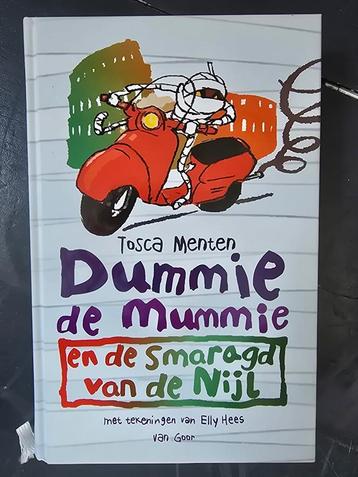 Tosca Menten
Dummie
de Mummie
en de Smaragd
van de Nijl
met tekeningen van Elly Hees
van Goor